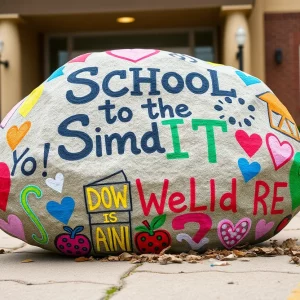 SCHOOL
to the
SimdIT
Yo!
DOW
IS
AIN!
WelId RE